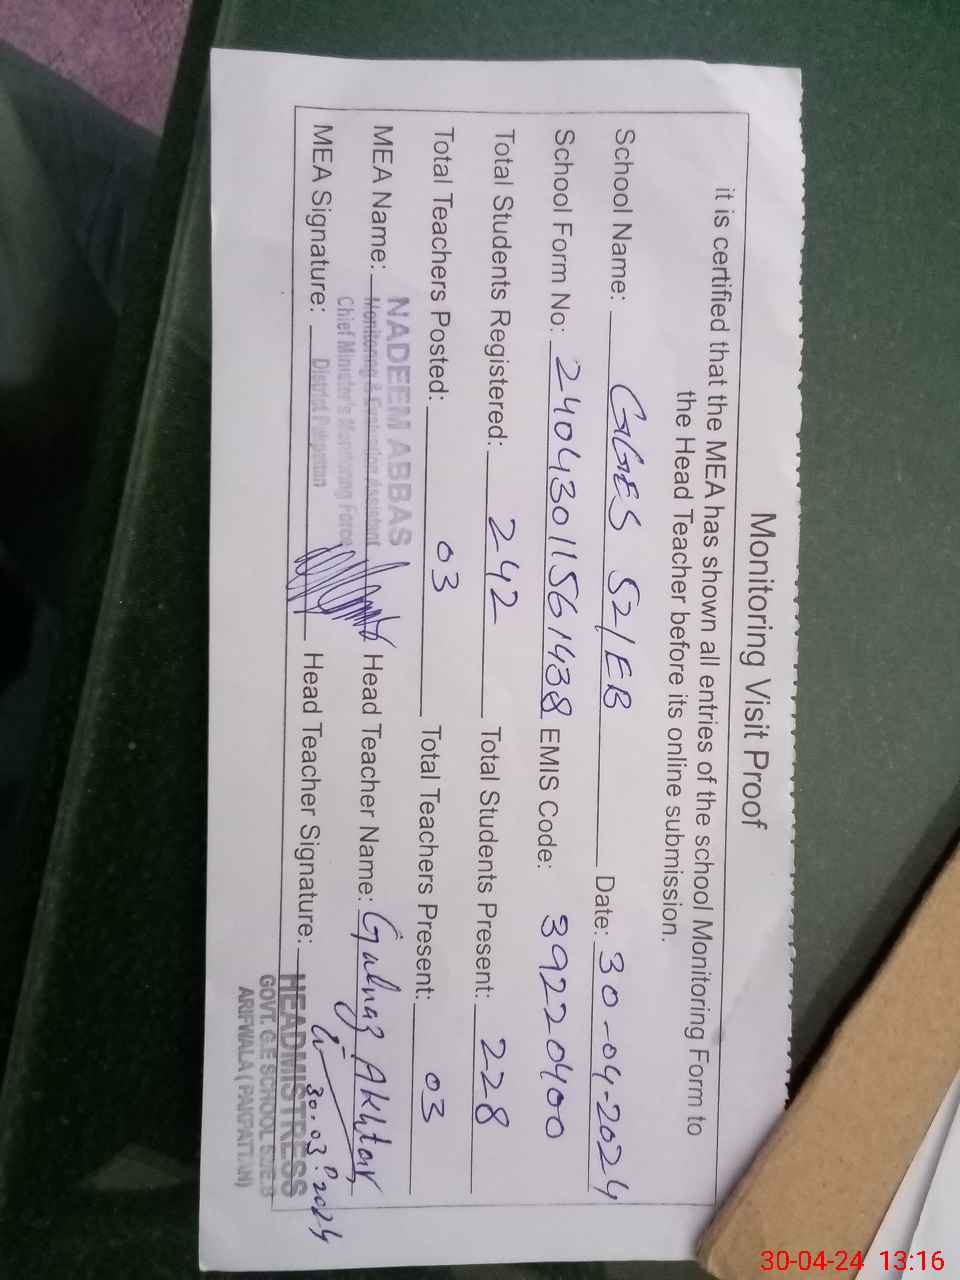 Monitoring Visit Proof
it is certified that the MEA has shown all entries of the school Monitoring Form to
the Head Teacher before its online submission.
School Name: GGES 52/EB Date: 30-04-2024
School Form No: 24043011561438 EMIS Code: 39220400
Total Students Registered: 242 Total Students Present: 228
Total Teachers Posted: 03 Total Teachers Present: 03
MEA Name: NADEEM ABBAS Head Teacher Name: Gulnaz Akhtar
Monitoring & Evaluation Assistant
Chief Minister's Monitoring Force
District Pakpattan
MEA Signature: Head Teacher Signature: 30.03.2024
HEADMISTRESS
GOVT. G.E SCHOOL 52/E.B
ARIFWALA (PAKPATTAN)
30-04-24 13:16